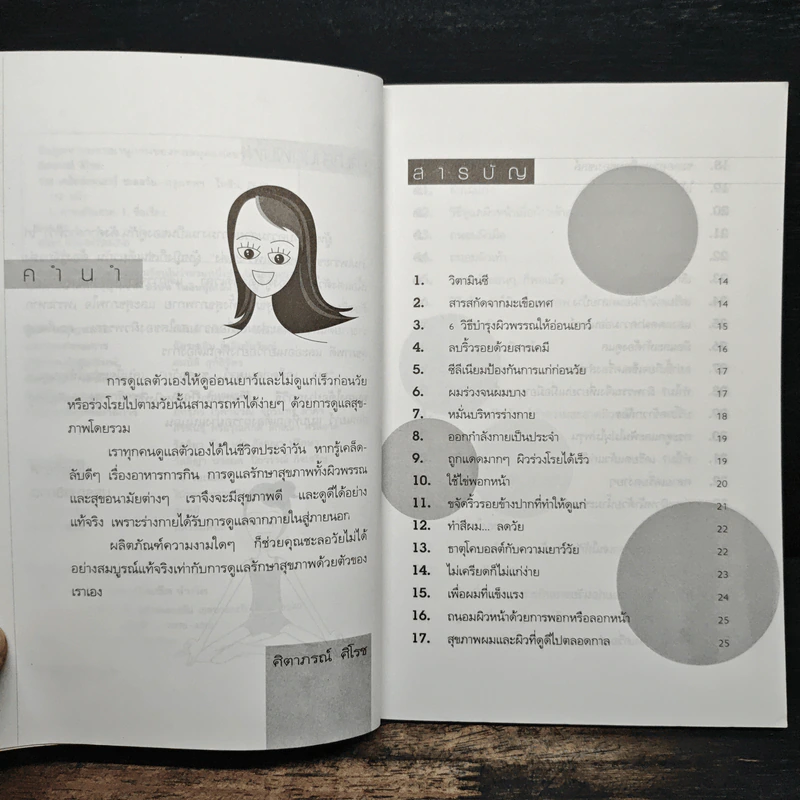 คำนำ
การดูแลตัวเองให้ดูอ่อนเยาว์และไม่ดูแก่เร็วก่อนวัย
หรือร่วงโรยไปตามวัยนั้นสามารถทำได้ง่ายๆ ด้วยการดูแลสุข-
ภาพโดยรวม
เราทุกคนดูแลตัวเองได้ในชีวิตประจำวัน หากรู้เคล็ด-
ลับดีๆ เรื่องอาหารการกิน การดูแลรักษาสุขภาพทั้งผิวพรรณ
และสุขอนามัยต่างๆ เราจึงจะมีสุขภาพดี และดูดีได้อย่าง
แท้จริง เพราะร่างกายได้รับการดูแลจากภายในสู่ภายนอก
ผลิตภัณฑ์ความงามใดๆ ก็ช่วยคุณชะลอวัยไม่ได้
อย่างสมบูรณ์แท้จริงเท่ากับการดูแลรักษาสุขภาพด้วยตัวของ
เราเอง
ศิตาภรณ์ ศิโรช
สารบัญ
1. วิตามินซี 14
2. สารสกัดจากมะเขือเทศ 14
3. 6 วิธีบำรุงผิวพรรณให้อ่อนเยาว์ 15
4. ลบริ้วรอยด้วยสารเคมี 16
5. ซีลีเนียมป้องกันการแก่ก่อนวัย 17
6. ผมร่วงจนผมบาง 17
7. หมั่นบริหารร่างกาย 18
8. ออกกำลังกายเป็นประจำ 19
9. ถูกแดดมากๆ ผิวร่วงโรยได้เร็ว 19
10. ใช้ไข่พอกหน้า 20
11. ขจัดริ้วรอยข้างปากที่ทำให้ดูแก่ 21
12. ทำสีผม... ลดวัย 22
13. ธาตุโคบอลต์กับความเยาว์วัย 22
14. ไม่เครียดก็ไม่แก่ง่าย 23
15. เพื่อผมที่แข็งแรง 24
16. ถนอมผิวหน้าด้วยการพอกหรือลอกหน้า 25
17. สุขภาพผมและผิวที่ดูดีไปตลอดกาล 25